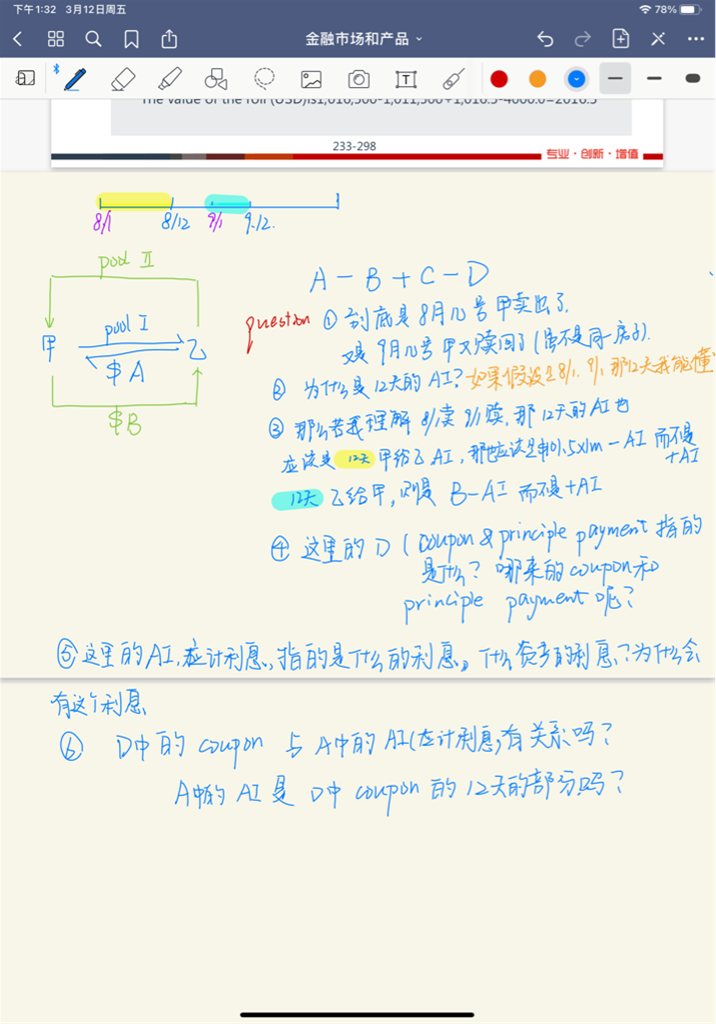 下午1:32 3月12日周五
78%
金融市场和产品
The value of the roll (USD)is1,016,500-1,011,500+1,016.5-4000.0=2016.5
233-298
专业·创新·增值
8/1 8/12 9/1 9.12.
pool Ⅱ
A - B + C - D
question ① 到底是8月12号甲卖出了.
pool Ⅰ
又是9月12号甲又赎回了(虽不是同一房子).
甲 乙
$A
② 为什么是12天的AI? 如果假设是8/1, 9/1, 那12天我能懂
$B
③ 那么若我理解 8/1卖 9/1赎, 那12天的AI也
应该是 12天 甲给乙AI, 那也应该是 1.5x1m - AI 而不是
+AI
12天 乙给甲, 则是 B-AI 而不是+AI
④ 这里的D ( coupon & principle payment 指的
是什么? 哪来的coupon和
principle payment呢?
⑤ 这里的AI, 应计利息, 指的是什么的利息, 什么 的利息? 为什么会
有这个利息
⑥ D中的 coupon 与 A中的AI(应计利息)有关系吗?
A中的 AI 是 D中 coupon 的12天的部分吗?